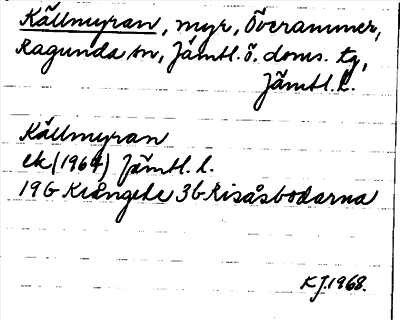 Källmyran, myr, Överammer,
Ragunda sn, Jämtl. ö. doms. tg,
Jämtl. l.
Källmyran
ek (1964) Jämtl. l.
19G Krångede 3b Risåsbodarna
KJ. 1968.